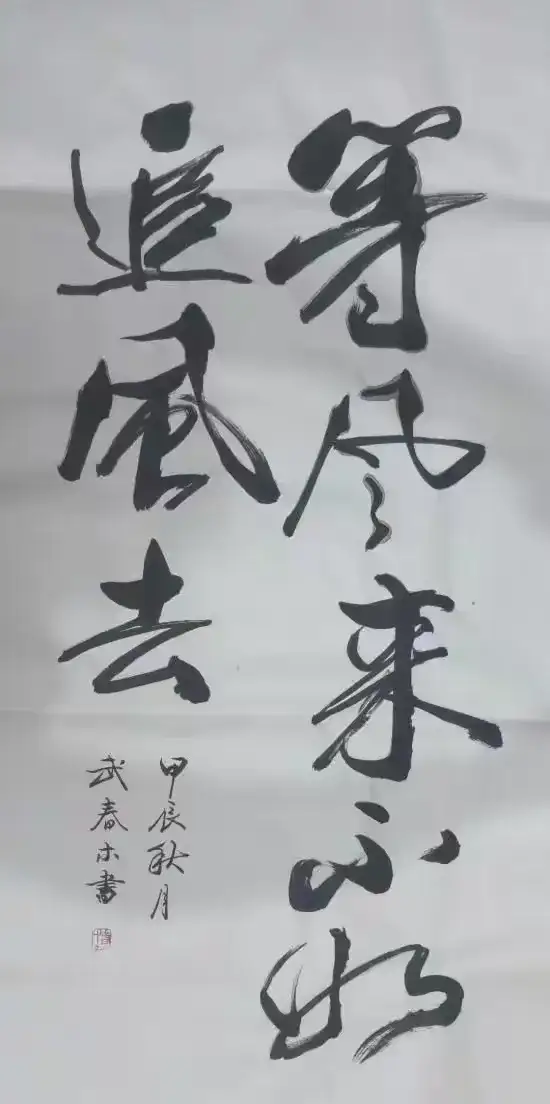 等风来不如
追風去
甲辰秋月
武春木書